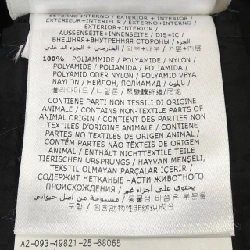 EXTERNO / INTERNO / EXTERIOR + INTERIOR
/ EXTÉRIEUR + INTÉRIEUR / EXTERNO + INTERNO
/ EXTERIOR + INTERIOR /
AUSSENSEITE + INNENSEITE / DIŞ + İÇ /
ВНЕШНАЯ + ВНУТРЕННЯЯ СТОРОНЫ /
100% POLIAMMIDE / POLYAMIDE / NYLON /
POLYAMIDE / POLIAMIDA / POLIAMIDA /
POLYAMID ODER NYLON / POLYAMID VEYA
NAYLON / НЕЙЛОН, ПОЛИАМИД /
CONTIENE PARTI NON TESSILI DI ORIGINE
ANIMALE / CONTAINS NON-TEXTILE PARTS OF
ANIMAL ORIGIN / CONTIENT DES PARTIES NON
TEXTILES D'ORIGINE ANIMALE / CONTIENE
PARTES NO TEXTILES DE ORIGEN ANIMAL /
CONTÉM PARTES NÃO TÊXTEIS DE ORIGEM
ANIMAL / ENTHÄLT NICHTTEXTILE TEILE
TIERISCHEN URSPRUNGS / HAYVAN MENŞELİ,
TEKSTİL OLMAYAN PARÇALAR İÇERİR /
СОДЕРЖИТ НЕТКАНЫЕ ЧАСТИ ЖИВОТНОГО
ПРОИСХОЖДЕНИЯ /
A2-093-49821-25-68068